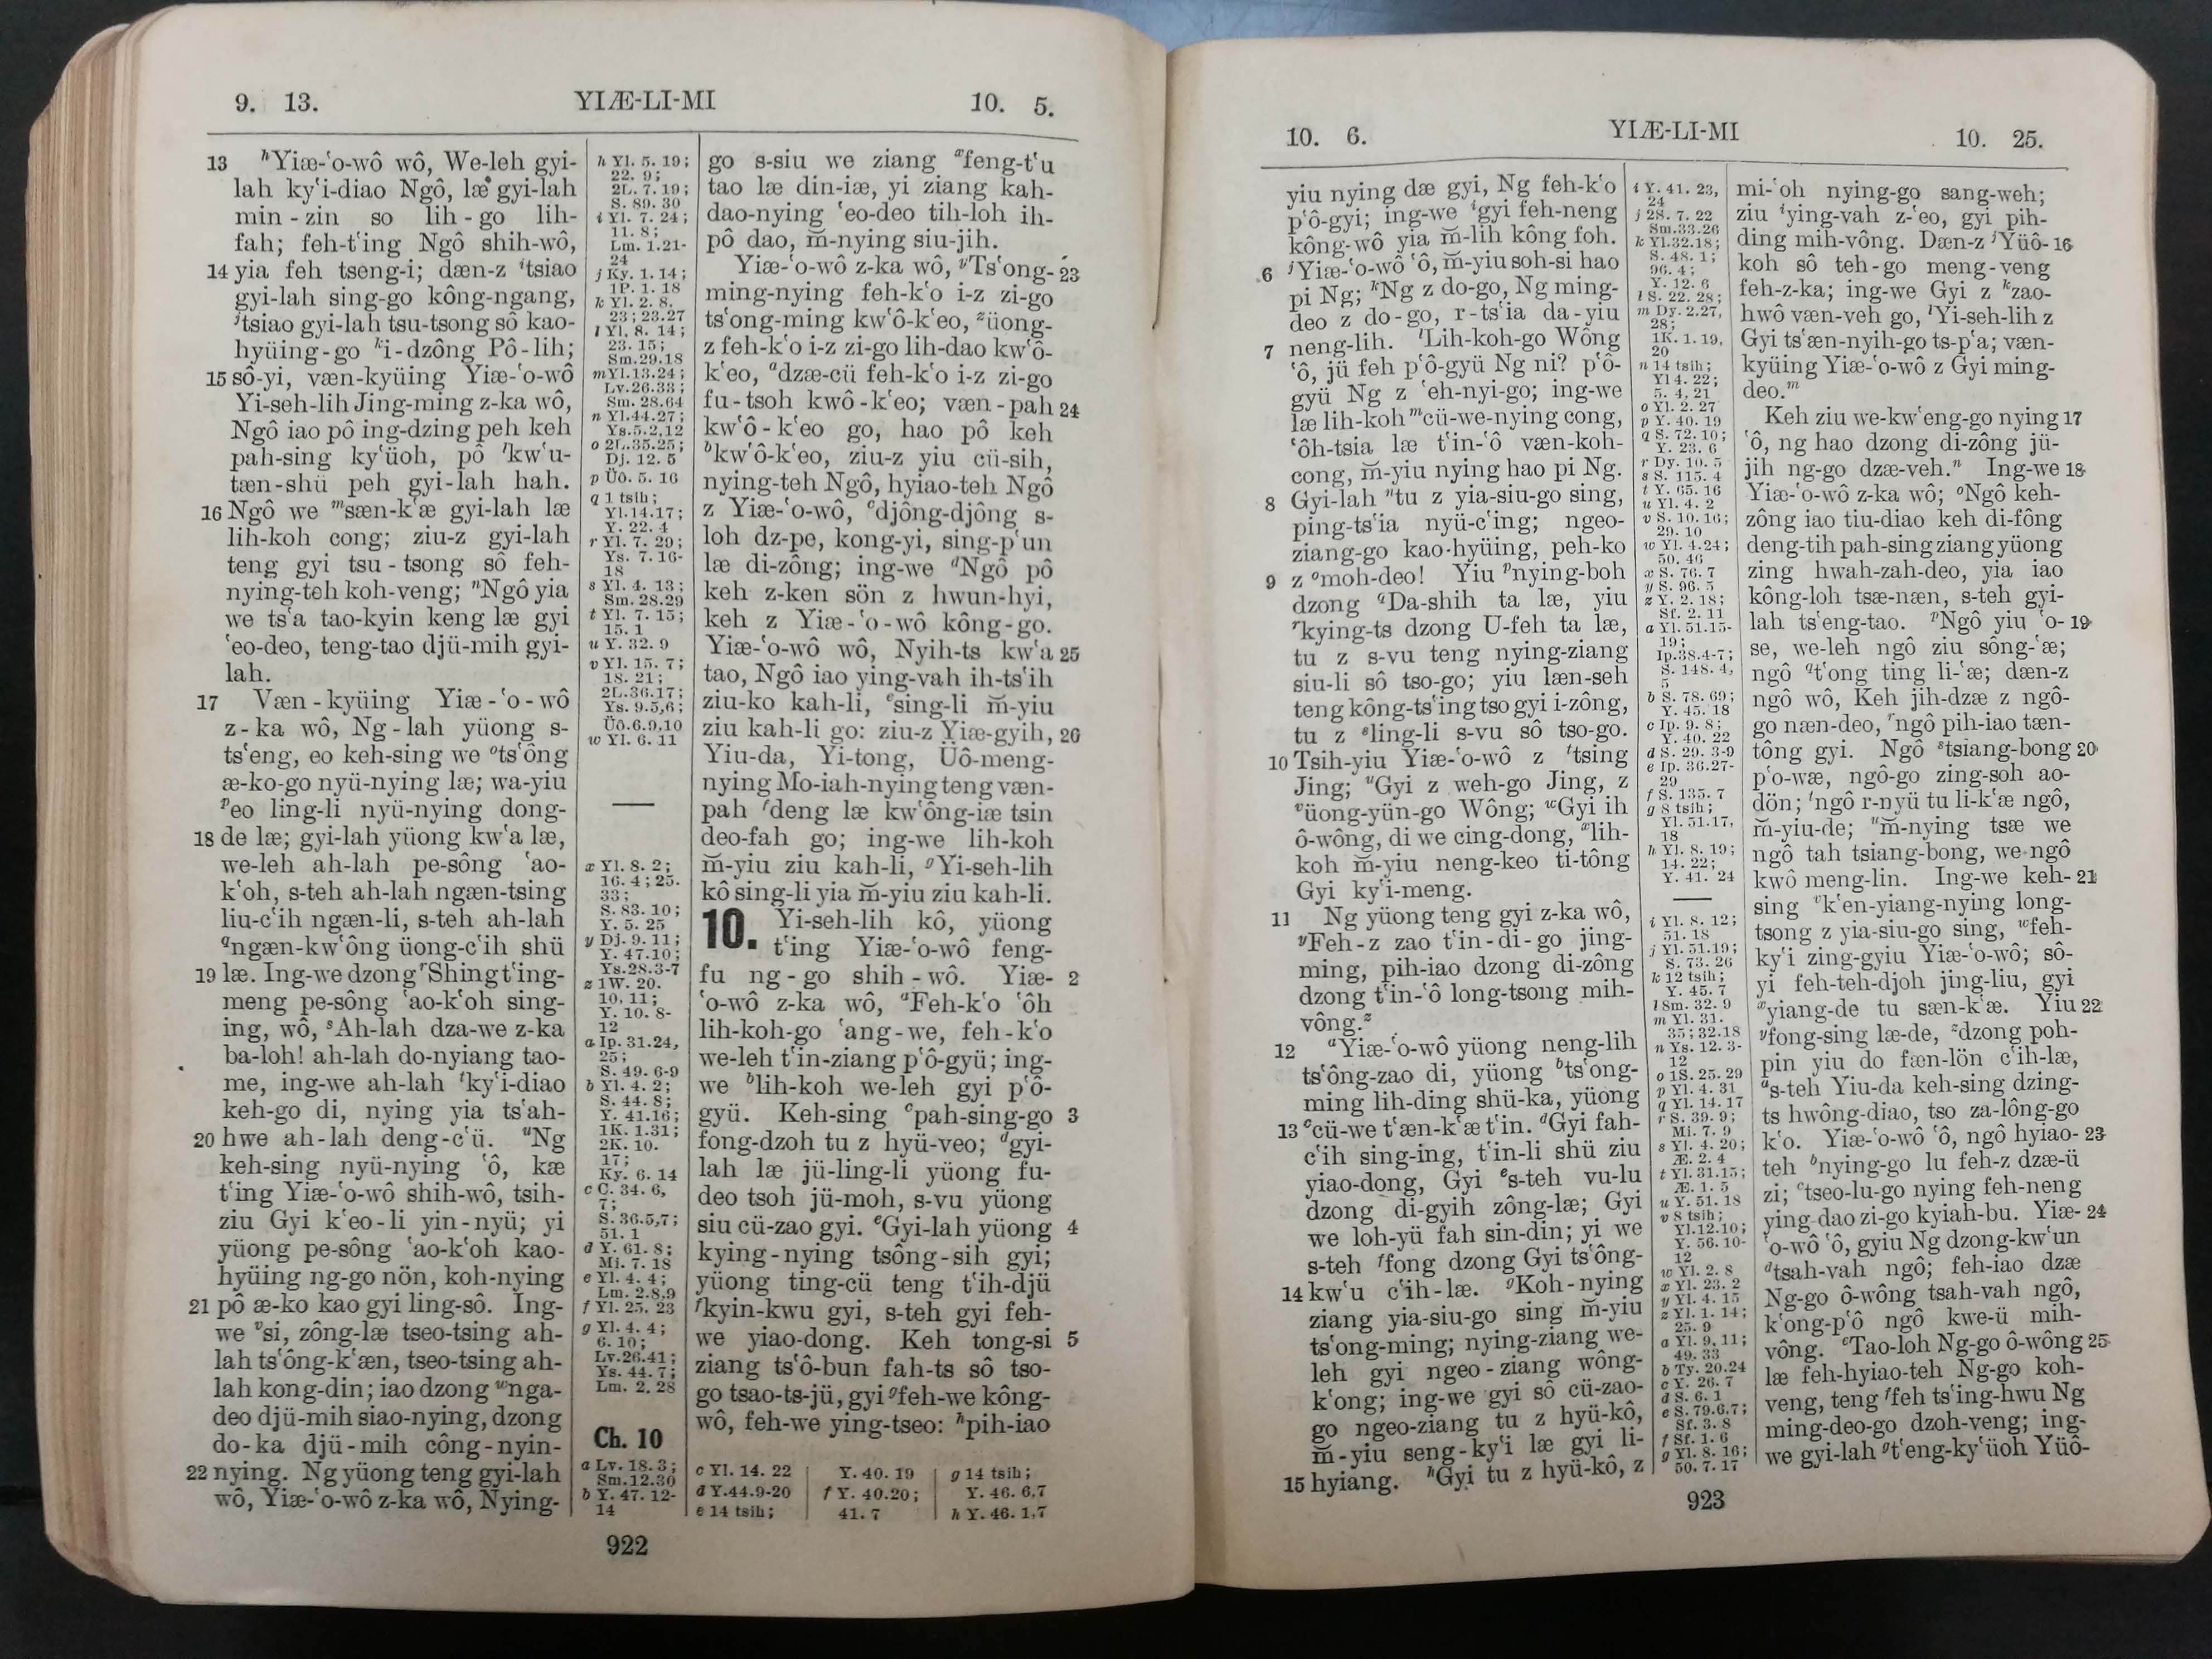 9. 13.
YIÆ-LI-MI
10. 5.
13 ʰYiæ-ʻo-wô wô, We-leh gyi-
lah kyʻi-diao Ngô, læ gyi-lah
min-zin so lih-go lih-
fah; feh-tʻing Ngô shih-wô,
14 yia feh tseng-i; dæn-z ⁱtsiao
gyi-lah sing-go kông-ngang,
ʲtsiao gyi-lah tsu-tsong sô kao-
hyüing-go ᵏi-dzông Pô-lih;
15 sô-yi, væn-kyüing Yiæ-ʻo-wô
Yi-seh-lih Jing-ming z-ka wô,
Ngô iao pô ing-dzing peh keh
pah-sing kyʻüoh, pô ˡkwʻu-
tæn-shü peh gyi-lah hah.
16 Ngô we ᵐsæn-kʻæ gyi-lah læ
lih-koh cong; ziu-z gyi-lah
teng gyi tsu-tsong sô feh-
nying-teh koh-veng; ⁿNgô yia
we tsʻa tao-kyin keng læ gyi
ʻeo-deo, teng-tao djü-mih gyi-
lah.
17 Væn-kyüing Yiæ-ʻo-wô
z-ka wô, Ng-lah yüong s-
tsʻeng, eo keh-sing we ᵒtsʻông
æ-ko-go nyü-nying læ; wa-yiu
ᵖeo ling-li nyü-nying dong-
18 de læ; gyi-lah yüong kwʻa læ,
we-leh ah-lah pe-sông ʻao-
kʻoh, s-teh ah-lah ngæn-tsing
liu-cʻih ngæn-li, s-teh ah-lah
ᑫngæn-kwʻông üong-cʻih shü
19 læ. Ing-we dzong ʳShing tʻing-
meng pe-sông ʻao-kʻoh sing-
ing, wô, ˢAh-lah dza-we z-ka
ba-loh! ah-lah do-nyiang tao-
me, ing-we ah-lah ᵗkyʻi-diao
keh-go di, nying yia tsʻah-
20 hwe ah-lah deng-cʻü. ᵘNg
keh-sing nyü-nying ʻô, kæ
tʻing Yiæ-ʻo-wô shih-wô, tsih-
ziu Gyi kʻeo-li yin-nyü; yi
yüong pe-sông ʻao-kʻoh kao-
hyüing ng-go nön, koh-nying
21 pô æ-ko kao gyi ling-sô. Ing-
we ᵛsi, zông-læ tseo-tsing ah-
lah tsʻông-kʻæn, tseo-tsing ah-
lah kong-din; iao dzong ʷnga-
deo djü-mih siao-nying, dzong
do-ka djü-mih công-nyin-
22 nying. Ng yüong teng gyi-lah
wô, Yiæ-ʻo-wô z-ka wô, Nying-
h Yl. 5. 19;
22. 9;
2L. 7. 19;
S. 89. 30
i Yl. 7. 24;
11. 8;
Lm. 1.21-
24
j Ky. 1. 14;
1P. 1. 18
k Yl. 2. 8.
23; 23.27
l Yl. 8. 14;
23. 15;
Sm.29.18
m Yl.13.24;
Lv.26.33;
Sm. 28.64
n Yl.44.27;
Ys.5.2,12
o 2L.35.25;
Dj. 12. 5
p Üô. 5. 16
q 1 tsih;
Yl.14.17;
Y. 22. 4
r Yl. 7. 29;
Ys. 7.16-
18
s Yl. 4. 13;
Sm. 28.29
t Yl. 7. 15;
15. 1
u Y. 32. 9
v Yl. 15. 7;
18. 21;
2L.36.17;
Ys. 9.5,6;
Üô.6.9,10
w Yl. 6. 11
x Yl. 8. 2;
16. 4; 25.
33;
S. 83. 10;
Y. 5. 25
y Dj. 9. 11;
Y. 47.10;
Ys.28.3-7
z 1W. 20.
10. 11;
Y. 10. 8-
12
a Ip. 31.24,
25;
S. 49. 6-9
b Yl. 4. 2;
S. 44. 8;
Y. 41.16;
1K. 1.31;
2K. 10.
17;
Ky. 6. 14
c C. 34. 6,
7;
S. 36.5,7;
51. 1
d Y. 61. 8;
Mi. 7. 18
e Yl. 4. 4;
Lm. 2.8,9
f Yl. 25. 23
g Yl. 4. 4;
6. 10;
Lv.26.41;
Ys. 44. 7;
Lm. 2. 28
Ch. 10
a Lv. 18.3;
Sm.12.30
b Y. 47. 12-
14
go s-siu we ziang ˣfeng-tʻu
tao læ din-iæ, yi ziang kah-
dao-nying ʻeo-deo tih-loh ih-
pô dao, m̆-nying siu-jih.
Yiæ-ʻo-wô z-ka wô, ʸTsʻong- 23
ming-nying feh-kʻo i-z zi-go
tsʻong-ming kwʻô-kʻeo, ᶻüong-
z feh-kʻo i-z zi-go lih-dao kwʻô-
kʻeo, ᵃdzæ-cü feh-kʻo i-z zi-go
fu-tsoh kwô-kʻeo; væn-pah 24
kwʻô-kʻeo go, hao pô keh
ᵇkwʻô-kʻeo, ziu-z yiu cü-sih,
nying-teh Ngô, hyiao-teh Ngô
z Yiæ-ʻo-wô, ᶜdjông-djông s-
loh dz-pe, kong-yi, sing-pʻun
læ di-zông; ing-we ᵈNgô pô
keh z-ken sön z hwun-hyi,
keh z Yiæ-ʻo-wô kông-go.
Yiæ-ʻo-wô wô, Nyih-ts kwʻa 25
tao, Ngô iao ying-vah ih-tsʻih
ziu-ko kah-li, ᵉsing-li m̆-yiu
ziu kah-li go: ziu-z Yiæ-gyih, 26
Yiu-da, Yi-tong, Üô-meng-
nying Mo-iah-nying teng væn-
pah ᶠdeng læ kwʻông-iæ tsin
deo-fah go; ing-we lih-koh
m̆-yiu ziu kah-li, ᵍYi-seh-lih
kô sing-li yia m̆-yiu ziu kah-li.
10. Yi-seh-lih kô, yüong
tʻing Yiæ-ʻo-wô feng-
fu ng-go shih-wô. Yiæ- 2
ʻo-wô z-ka wô, ᵃFeh-kʻo ʻôh
lih-koh-go ʻang-we, feh-kʻo
we-leh tʻin-ziang pʻô-gyü; ing-
we ᵇlih-koh we-leh gyi pʻô-
gyü. Keh-sing ᶜpah-sing-go 3
fong-dzoh tu z hyü-veo; ᵈgyi-
lah læ jü-ling-li yüong fu-
deo tsoh jü-moh, s-vu yüong
siu cü-zao gyi. ᵉGyi-lah yüong 4
kying-nying tsông-sih gyi;
yüong ting-cü teng tʻih-djü
ᶠkyin-kwu gyi, s-teh gyi feh-
we yiao-dong. Keh tong-si 5
ziang tsʻô-bun fah-ts sô tso-
go tsao-ts-jü, gyi ᵍfeh-we kông-
wô, feh-we ying-tseo: ʰpih-iao
c Yl. 14. 22
d Y.44.9-20
e 14 tsih;
Y. 40. 19
f Y. 40.20;
41. 7
g 14 tsih;
Y. 46. 6,7
h Y. 46. 1,7
922
10. 6.
YIÆ-LI-MI
10. 25.
yiu nying dæ gyi, Ng feh-kʻo
pʻô-gyi; ing-we ⁱgyi feh-neng
kông-wô yia m̆-lih kông foh.
6 ʲYiæ-ʻo-wô ʻô, m̆-yiu soh-si hao
pi Ng; ᵏNg z do-go, Ng ming-
deo z do-go, r-tsʻia da-yiu
7 neng-lih. ˡLih-koh-go Wông
ʻô, jü feh pʻô-gyü Ng ni? pʻô-
gyü Ng z ʻeh-nyi-go; ing-we
læ lih-koh ᵐcü-we-nying cong,
ʻôh-tsia læ tʻin-ʻô væn-koh-
cong, m̆-yiu nying hao pi Ng.
8 Gyi-lah ⁿtu z yia-siu-go sing,
ping-tsʻia nyü-cʻing; ngeo-
ziang-go kao-hyüing, peh-ko
9 z ᵒmoh-deo! Yiu ᵖnying-boh
dzong ᑫDa-shih ta læ, yiu
ʳkying-ts dzong U-feh ta læ,
tu z s-vu teng nying-ziang
siu-li sô tso-go; yiu læn-seh
teng kông-tsʻing tso gyi i-zông,
tu z ˢling-li s-vu sô tso-go.
10 Tsih-yiu Yiæ-ʻo-wô z ᵗtsing
Jing; ᵘGyi z weh-go Jing, z
ᵛüong-yün-go Wông; ʷGyi ih
ô-wông, di we cing-dong, ˣlih-
koh m̆-yiu neng-keo ti-tông
Gyi kyʻi-meng.
11 Ng yüong teng gyi z-ka wô,
ʸFeh-z zao tʻin-di-go jing-
ming, pih-iao dzong di-zông
dzong tʻin-ʻô long-tsong mih-
vông.ᶻ
12 ᵃYiæ-ʻo-wô yüong neng-lih
tsʻông-zao di, yüong ᵇtsʻong-
ming lih-ding shü-ka, yüong
13 ᶜcü-we tʻæn-kʻæ tʻin. ᵈGyi fah-
cʻih sing-ing, tʻin-li shü ziu
yiao-dong, Gyi ᵉs-teh vu-lu
dzong di-gyih zông-læ; Gyi
we loh-yü fah sin-din; yi we
s-teh ᶠfong dzong Gyi tsʻông-
14 kwʻu cʻih-læ. ᵍKoh-nying
ziang yia-siu-go sing m̆-yiu
tsʻong-ming; nying-ziang we-
leh gyi ngeo-ziang wông-
kʻong; ing-we gyi sô cü-zao-
go ngeo-ziang tu z hyü-kô,
m̆-yiu seng-kyʻi læ gyi li-
15 hyiang. ʰGyi tu z hyü-kô, z
i Y. 41. 23,
24
j 2S. 7. 22
Sm.33.26
k Yl.32.18;
S. 48. 1;
96. 4;
Y. 12. 6
l S. 22. 28;
m Dy. 2.27,
28;
1K. 1. 19,
20
n 14 tsih;
Yl 4. 22;
5. 4, 21
o Yl. 2. 27
p Y. 40. 19
q S. 72. 10;
Y. 23. 6
r Dy. 10. 5
s S. 115. 4
t Y. 65. 16
u Yl. 4. 2
v S. 10. 16;
29. 10
w Yl. 4.24;
50. 46
x S. 76. 7
y S. 96. 5
z Y. 2. 18;
Sf. 2. 11
a Yl. 51.15-
19;
Ip.38.4-7;
S. 148. 4,
5
b S. 78. 69;
Y. 45. 18
c Ip. 9. 8;
Y. 40. 22
d S. 29. 3-9
e Ip. 36.27-
29
f S. 135. 7
g 8 tsih;
Yl. 51.17,
18
h Yl. 8. 19;
14. 22;
Y. 41. 24
i Yl. 8. 12;
51. 18
j Yl. 51.19;
S. 73. 26
k 12 tsih;
Y. 45. 7
l Sm. 32. 9
m Yl. 31.
35; 32.18
n Ys. 12. 3-
12
o 1S. 25. 29
p Yl. 4. 31
q Yl. 14. 17
r S. 39. 9;
Mi. 7. 9
s Yl. 4. 20;
Æ. 2. 4
t Yl.31.15;
Æ. 1. 5
u Y. 51. 18
v 8 tsih;
Yl.12.10;
Y. 56. 10-
12
w Yl. 2. 8
x Yl. 23. 2
y Yl. 4. 15
z Yl. 1. 14;
25. 9
a Yl. 9. 11;
49. 33
b Ty. 20.24
c Y. 26. 7
d S. 6. 1
e S. 79.6,7;
Sf. 3. 8
f Sf. 1. 6
g Yl. 8. 16;
50. 7.17
mi-ʻoh nying-go sang-weh;
ziu ⁱying-vah z-ʻeo, gyi pih-
ding mih-vông. Dæn-z ʲYüô- 16
koh sô teh-go meng-veng
feh-z-ka; ing-we Gyi z ᵏzao-
hwô væn-veh go, ˡYi-seh-lih z
Gyi tsʻæn-nyih-go ts-pʻa; væn-
kyüing Yiæ-ʻo-wô z Gyi ming-
deo.ᵐ
Keh ziu we-kwʻeng-go nying 17
ʻô, ng hao dzong di-zông jü-
jih ng-go dzæ-veh.ⁿ Ing-we 18
Yiæ-ʻo-wô z-ka wô; ᵒNgô keh-
zông iao tiu-diao keh di-fông
deng-tih pah-sing ziang yüong
zing hwah-zah-deo, yia iao
kông-loh tsæ-næn, s-teh gyi-
lah tsʻeng-tao. ᵖNgô yiu ʻo- 19
se, we-leh ngô ziu sông-ʻæ;
ngô ᑫtʻong ting li-ʻæ; dæn-z
ngô wô, Keh jih-dzæ z ngô-
go næn-deo, ʳngô pih-iao tæn-
tông gyi. Ngô ˢtsiang-bong 20
pʻo-wæ, ngô-go zing-soh ao-
dön; ᵗngô r-nyü tu li-kʻæ ngô,
m̆-yiu-de; ᵘm̆-nying tsæ we
ngô tah tsiang-bong, we ngô
kwô meng-lin. Ing-we keh- 21
sing ᵛkʻen-yiang-nying long-
tsong z yia-siu-go sing, ʷfeh-
kyʻi zing-gyiu Yiæ-ʻo-wô; sô-
yi feh-teh-djoh jing-liu, gyi
ˣyiang-de tu sæn-kʻæ. Yiu 22
ʸfong-sing læ-de, ᶻdzong poh-
pin yiu do fæn-lön cʻih-læ,
ᵃs-teh Yiu-da keh-sing dzing-
ts hwông-diao, tso za-lông-go
kʻo. Yiæ-ʻo-wô ʻô, ngô hyiao- 23
teh ᵇnying-go lu feh-z dzæ-ü
zi; ᶜtseo-lu-go nying feh-neng
ying-dao zi-go kyiah-bu. Yiæ- 24
ʻo-wô ʻô, gyiu Ng dzong-kwʻun
ᵈtsah-vah ngô; feh-iao dzæ
Ng-go ô-wông tsah-vah ngô,
kʻong-pʻô ngô kwe-ü mih-
vông. ᵉTao-loh Ng-go ô-wông 25
læ feh-hyiao-teh Ng-go koh-
veng, teng ᶠfeh tsʻing-hwu Ng
ming-deo-go dzoh-veng; ing-
we gyi-lah ᵍtʻeng-kyʻüoh Yüô-
923